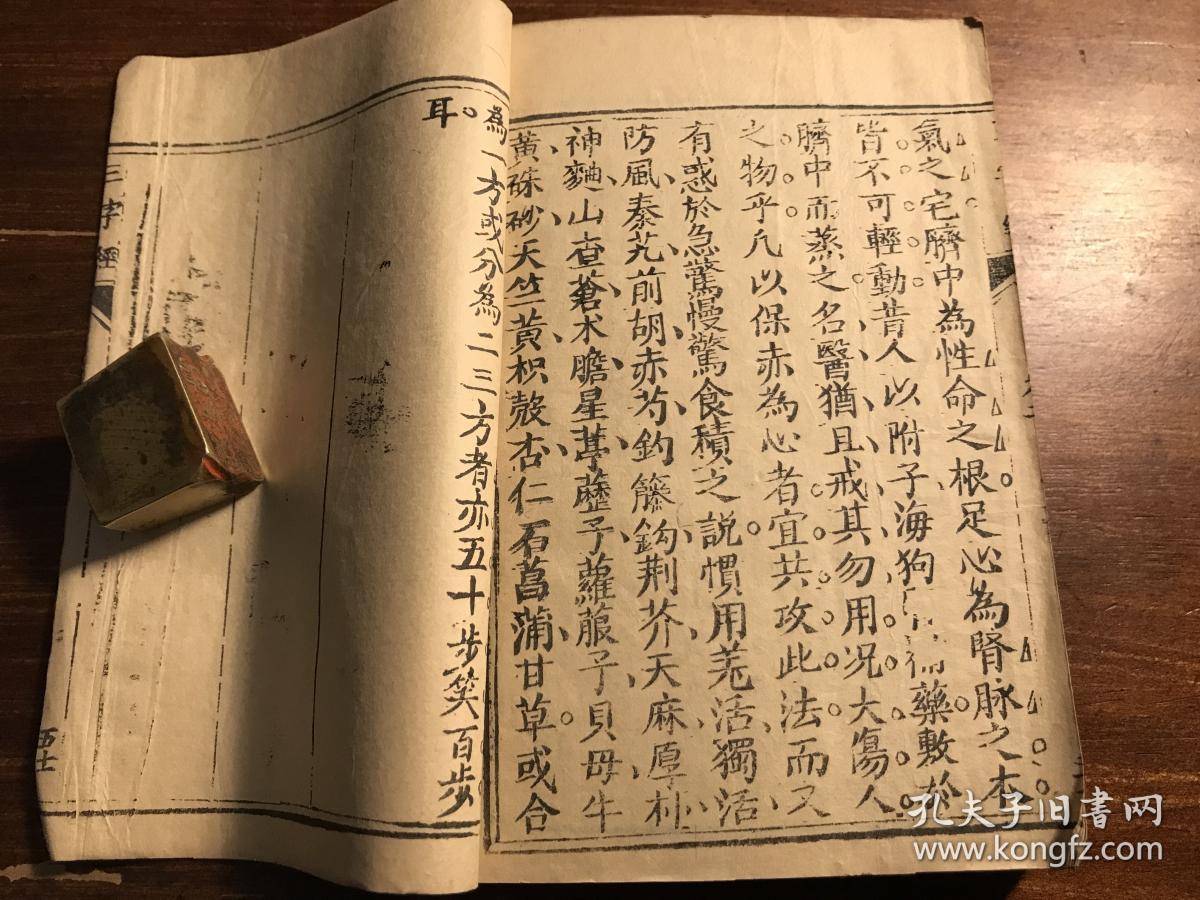 氣之宅臍中為性命之根足心為腎脉之本
皆不可輕動昔人以附子海狗補藥敷於
臍中而蒸之名醫猶且戒其勿用况大傷人
之物乎凡以保赤為心者宜共攻此法而又
有惑於急驚慢驚食積之說慣用羗活獨活
防風秦艽前胡赤芍鈎籐鈎荆芥天麻厚朴
神麯山查蒼术膽星葶藶子蘿菔子貝母牛
黃硃砂天竺黃枳殻杏仁石菖蒲甘草或合
為一方或分為二三方者亦五十步笑百步
耳
三字經
孔夫子旧书网
www.kongfz.com